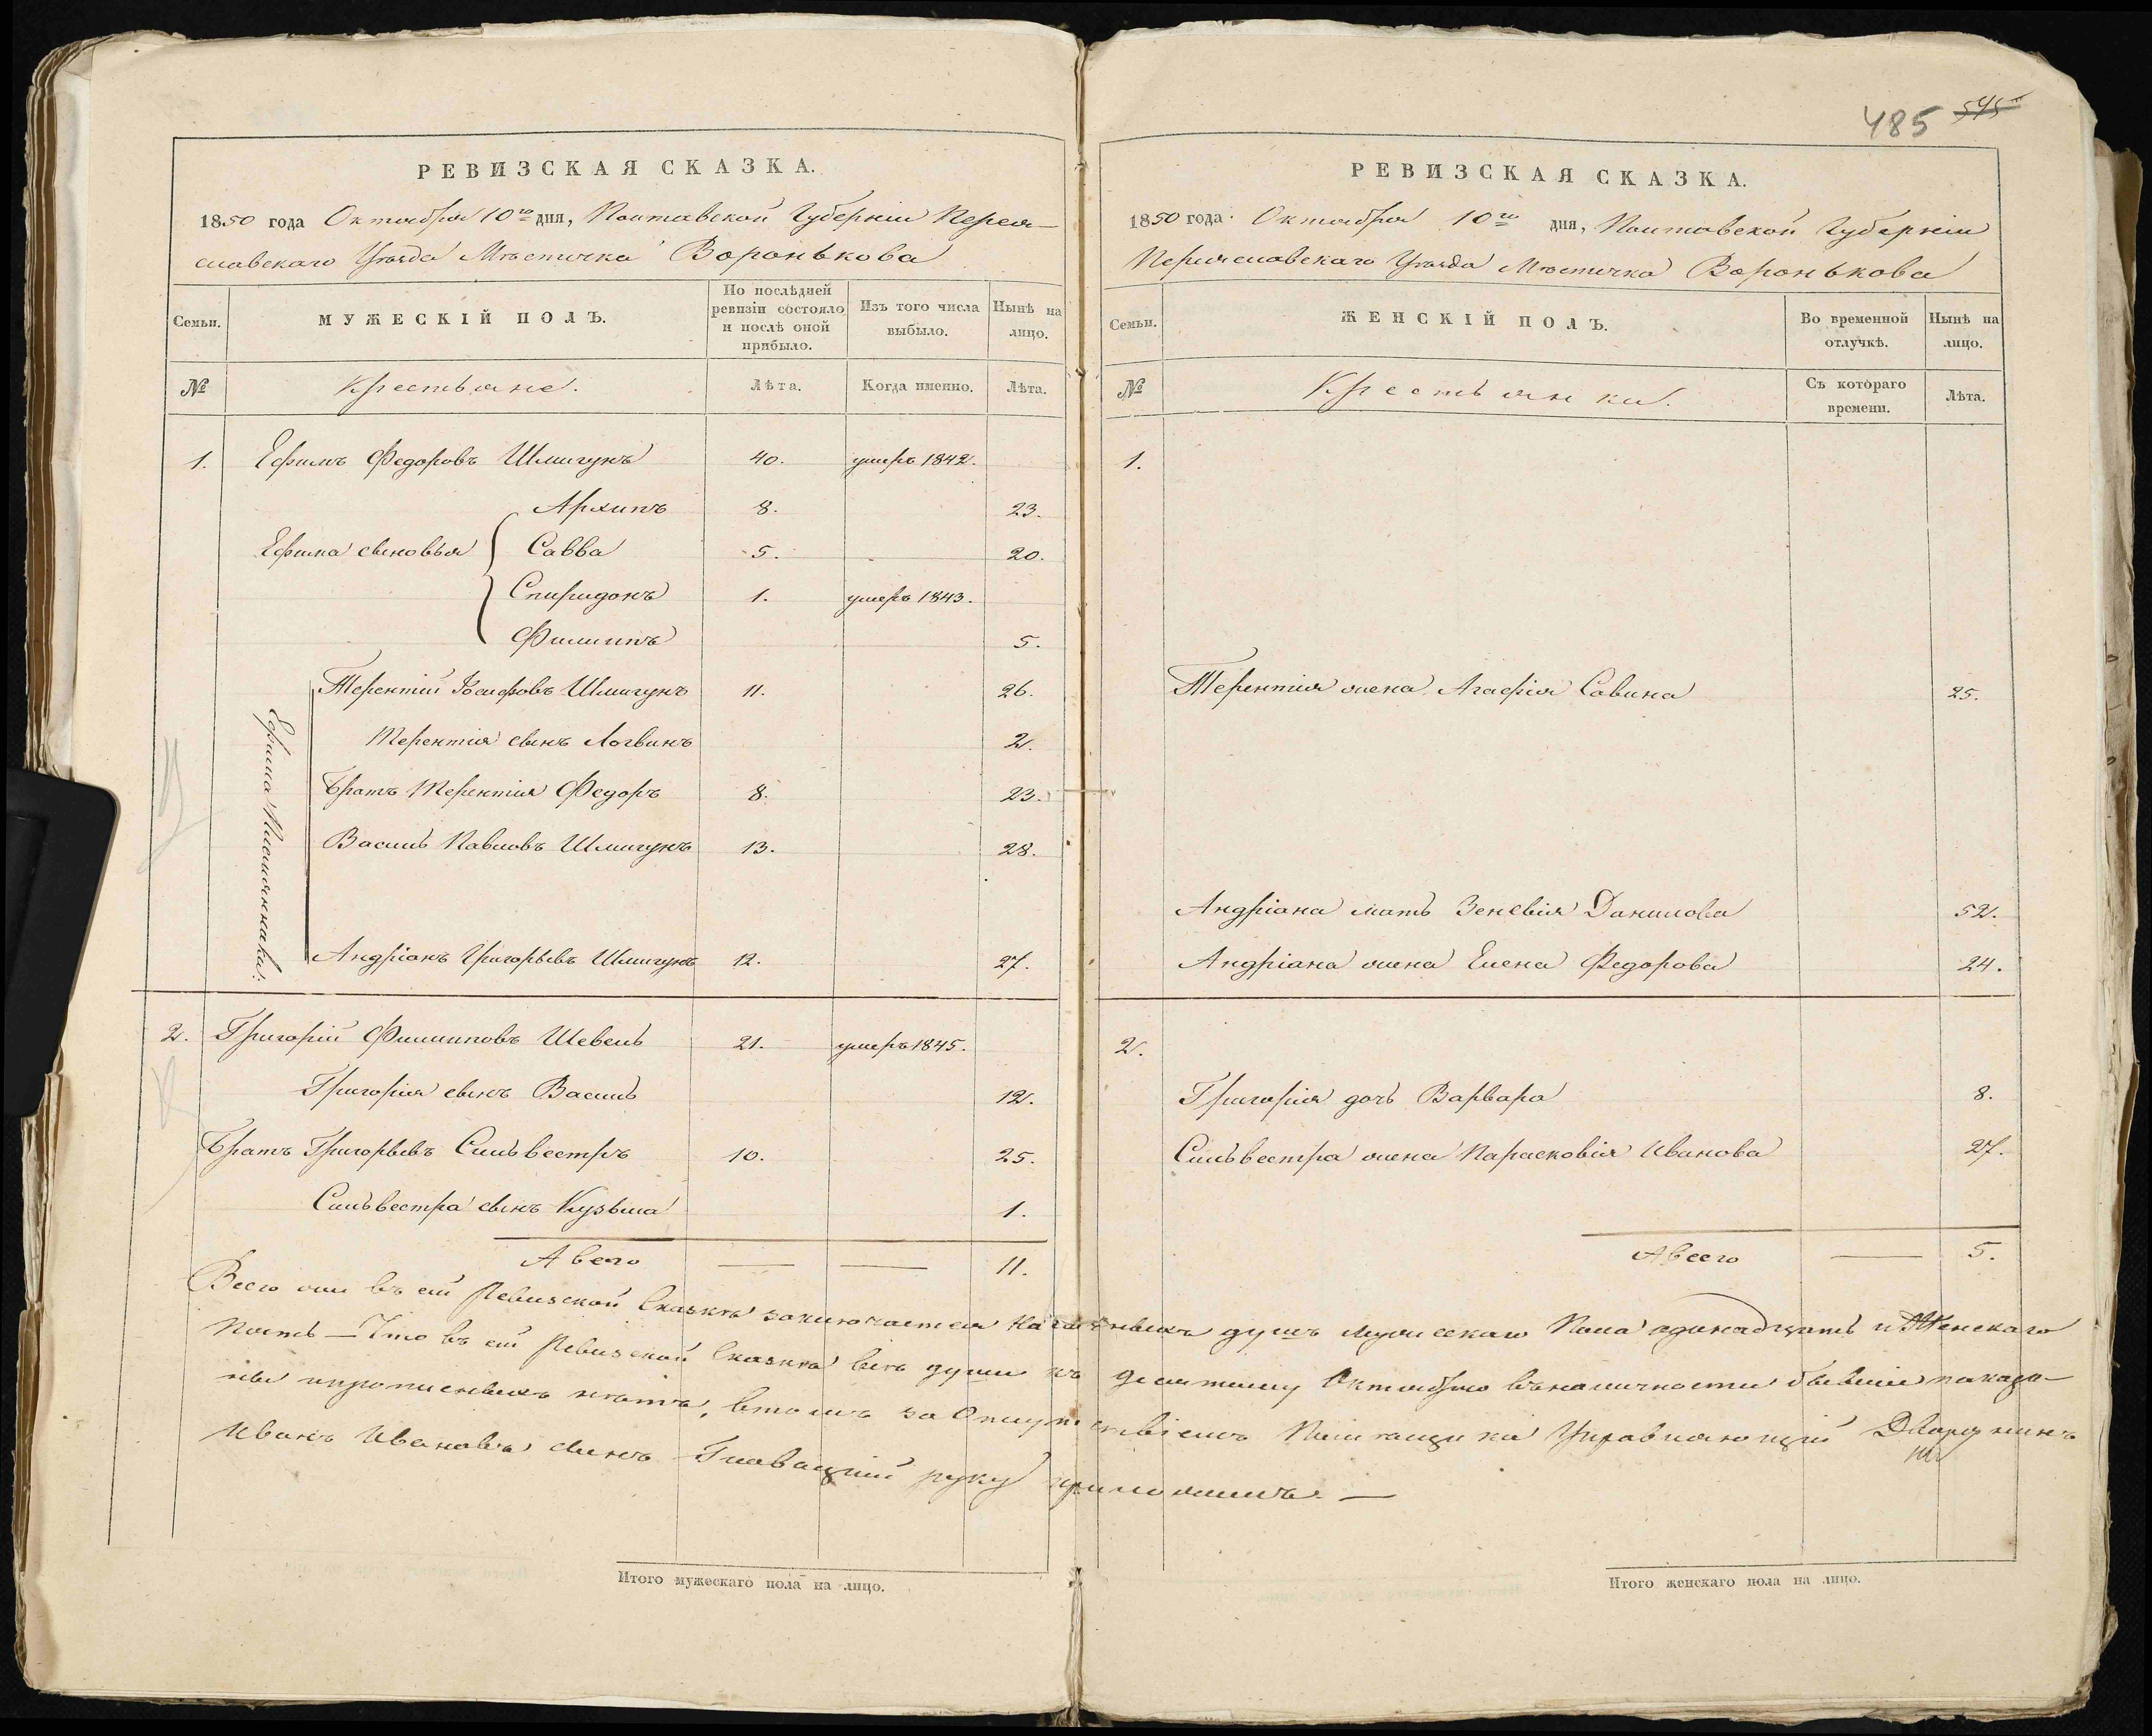 485 545
РЕВИЗСКАЯ СКАЗКА.
1850 года Октября 10го дня, Полтавской Губерніи Перея-
славскаго Уѣзда Мѣстечка Воронькова
Семьи.
МУЖЕСКІЙ ПОЛЪ.
По послѣдней ревизіи состояло и послѣ оной прибыло.
Изъ того числа выбыло.
Нынѣ на лицо.
№
Крестьяне.
Лѣта.
Когда именно.
Лѣта.
1. Ефимъ Федоровъ Шмигунъ 40. умеръ 1842.
Архипъ 8. 23.
Ефима сыновья Савва 5. 20.
Спиридонъ 1. умеръ 1843.
Филиппъ 5.
Ефима Племянники:
Терентій Іосифовъ Шмигунъ 11. 26.
Терентія сынъ Логвинъ 2.
Братъ Терентія Федоръ 8. 23.
Василь Павловъ Шмигунъ 13. 28.
Андріанъ Григорьевъ Шмигунъ 12. 27.
2. Григорій Филипповъ Шевель 21. умеръ 1845.
Григорія сынъ Василь 12.
Братъ Григорьевъ Сильвестръ 10. 25.
Сильвестра сынъ Кузьма 1.
А всего — — 11.
РЕВИЗСКАЯ СКАЗКА.
1850 года Октября 10го дня, Полтавской Губерніи
Переяславскаго Уѣзда Мѣстечка Воронькова
Семьи.
ЖЕНСКІЙ ПОЛЪ.
Во временной отлучкѣ.
Нынѣ на лицо.
№
Крестьянки.
Съ котораго времени.
Лѣта.
1.
Терентія жена Агафія Савина 25.
Андріана мать Зеневія Данилова 52.
Андріана жена Елена Федорова 24.
2.
Григорія дочь Варвара 8.
Сильвестра жена Парасковія Иванова 27.
А всего — 5.
Всего въ сій Ревизской Сказкѣ заключается наличныхъ душъ мужескаго Пола одинадцать и Женскаго
Пять — Что въ сій Ревизской Сказкѣ всѣ души къ десятому Октябрю въ наличности бывшіе показа-
ны и прописныхъ нѣтъ, втомъ за Отсутствіемъ Помѣщика Управляющій Дворянинъ
Иванъ Ивановъ сынъ Главацкій руку приложилъ. —
Итого мужескаго пола на лицо.
Итого женскаго пола на лицо.